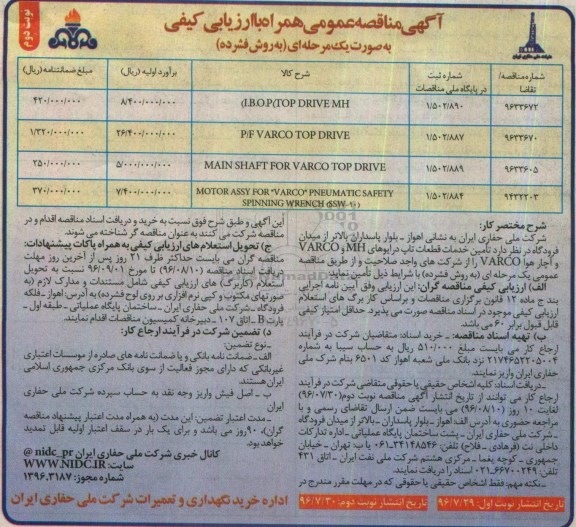 آگهی مناقصه عمومی همراه با ارزیابی کیفی
به صورت یک مرحله ای (به روش فشرده)
نوبت دوم
شماره مناقصه/ تقاضا
شماره ثبت در پایگاه ملی مناقصات
شرح کالا
برآورد اولیه (ریال)
مبلغ ضمانتنامه (ریال)
۹۶۳۳۶۷۲ ۱/۵۰۲/۸۹۰ (I.B.O.P(TOP DRIVE MH ۸/۴۰۰/۰۰۰/۰۰۰ ۴۲۰/۰۰۰/۰۰۰
۹۶۳۳۶۷۰ ۱/۵۰۲/۸۸۷ P/F VARCO TOP DRIVE ۲۶/۴۰۰/۰۰۰/۰۰۰ ۱/۳۲۰/۰۰۰/۰۰۰
۹۶۳۳۶۰۵ ۱/۵۰۲/۸۸۹ MAIN SHAFT FOR VARCO TOP DRIVE ۵/۰۰۰/۰۰۰/۰۰۰ ۲۵۰/۰۰۰/۰۰۰
۹۴۳۲۲۰۳ ۱/۵۰۲/۸۸۴ MOTOR ASSY FOR "VARCO" PNEUMATIC SAFETY SPINNING WRENCH (SSW-۲۶) ۷/۴۰۰/۰۰۰/۰۰۰ ۳۷۰/۰۰۰/۰۰۰
شرح مختصر کار:
شرکت ملی حفاری ایران به نشانی اهواز ـ بلوار پاسداران بالاتر از میدان
فرودگاه در نظر دارد تأمین خدمات قطعات تاپ درایوهای MH و VARCO
و آچار هوا VARCO را از شرکت های واجد صلاحیت و از طریق مناقصه
عمومی یک مرحله ای (به روش فشرده) با شرایط ذیل تأمین نمایند.
الف) ارزیابی کیفی مناقصه گران: این ارزیابی وفق آیین نامه اجرایی
بند ج ماده ۱۲ قانون برگزاری مناقصات و براساس کاربرگ های استعلام
ارزیابی کیفی موجود در اسناد مناقصه صورت می پذیرد. حداقل امتیاز کیفی
قابل قبول برابر ۶۰ می باشد.
ب) تهیه اسناد مناقصه: ـ خرید اسناد: متقاضیان شرکت در فرآیند
ارجاع کار می بایست مبلغ ۵۱۰/۰۰۰ ریال به حساب سیبا به شماره
۲۱۷۴۶۵۳۲۰۵۰۰۴ نزد بانک ملی شعبه اهواز کد ۶۵۰۱ بنام شرکت ملی
حفاری ایران واریز نمایند.
ـ دریافت اسناد: کلیه اشخاص حقیقی یا حقوقی متقاضی شرکت در فرآیند
ارجاع کار می توانند از تاریخ انتشار آگهی مناقصه نوبت دوم (۹۶/۰۷/۳۰)
لغایت ۱۰ روز (۹۶/۰۸/۱۰) می بایست ضمن ارسال تقاضای رسمی و با
مراجعه حضوری به آدرس الف: اهواز ـ بلوار پاسداران ـ بالاتر از میدان فرودگاه
ـ شرکت ملی حفاری ایران ـ پشت ساختمان پایگاه عملیاتی ـ اداره تدارکات
داخلی نت (فرهادی ـ فلاح) تلفن: ۳۴۱۴۸۵۴۶-۰۶۱ یا ب: تهران ـ خیابان
جمهوری ـ کوچه یغما ـ مرکزی هشتم شرکت ملی نفت ایران ـ اتاق ۴۳۱
تلفن: ۶۶۷۰۰۲۴۹-۰۲۱ اسناد را دریافت نمایند.
ـ نکته مهم: فقط اشخاص حقیقی یا حقوقی که در مهلت مقرر مندرج در
این آگهی و طبق شرح فوق نسبت به خرید و دریافت اسناد مناقصه اقدام و در
مناقصه شرکت می کنند به عنوان مناقصه گر شناخته می شوند.
ج) تحویل استعلام های ارزیابی کیفی به همراه پاکات پیشنهادات:
مناقصه گران می بایست حداکثر ظرف ۲۱ روز پس از آخرین روز مهلت
دریافت اسناد مناقصه (۹۶/۰۸/۱۰) تا مورخ ۹۶/۰۹/۰۱ نسبت به تحویل
استعلام (کاربرگ) های ارزیابی کیفی شامل مستندات و مدارک لازم (به
صورتهای مکتوب و کپی نرم افزاری بر روی لوح فشرده) به آدرس اهواز ـ فلکه
فرودگاه ـ شرکت ملی حفاری ایران ـ ساختمان پایگاه عملیاتی ـ طبقه اول ـ
پارت B ـ اتاق ۱۰۷ ـ دبیرخانه کمیسیون مناقصات اقدام نمایند.
د) تضمین شرکت در فرآیند ارجاع کار:
ـ نوع تضمین:
الف ـ ضمانت نامه بانکی و یا ضمانت نامه های صادره از موسسات اعتباری
غیربانکی که دارای مجوز فعالیت از سوی بانک مرکزی جمهوری اسلامی
ایران هستند.
ب ـ اصل فیش واریز وجه نقد به حساب سپرده شرکت ملی حفاری
ایران
ـ مدت اعتبار تضمین: این مدت (به همراه مدت اعتبار پیشنهاد مناقصه
گران)، ۹۰ روز می باشد و برای یک بار در سقف اعتبار اولیه قابل تمدید
خواهد بود.
کانال خبری شرکت ملی حفاری ایران nidc_pr @
سایت: WWW.NIDC.IR
شماره مجوز: ۱۳۹۶.۳۱۸۷
تاریخ انتشار نوبت اول: ۹۶/۷/۲۹
تاریخ انتشار نوبت دوم: ۹۶/۷/۳۰
اداره خرید نگهداری و تعمیرات شرکت ملی حفاری ایران